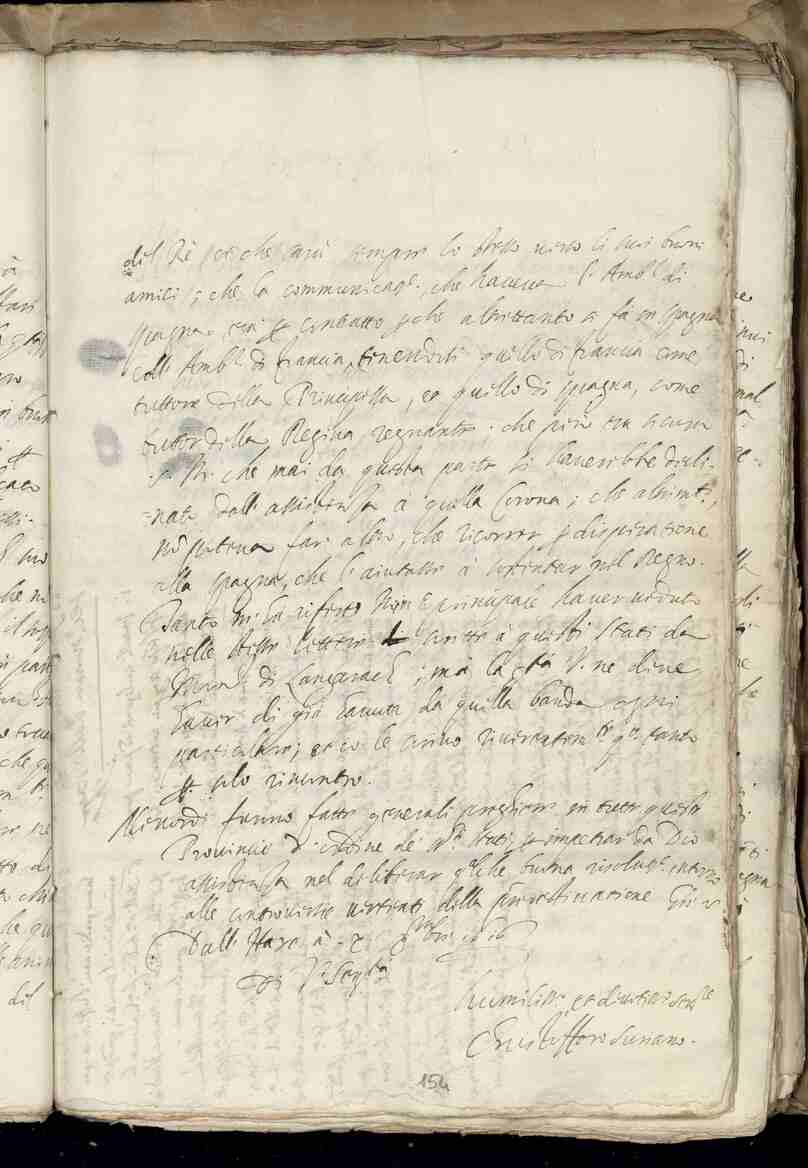 del Rè, et che sarà sempre lo stesso verso li suoi buoni
amici; che la communicat.e, che haveva l'Amb.r di
Spagna, era per contratto che altrettanto si fà in Spagna
coll'Amb.r di Francia, tenendosi quello di Francia come
tuttore della Principessa, et quello di Spagna, come
tuttor della Regina regnante. che però sia sicura
S. M. che mai da questa parte si haverebbe decli-
nato dall'assistenza à quella Corona; che altrim.te
nõ poteva far altro, che ricorrer per disperatione
alla Spagna, che l'aiutasse à sostentar nel Regno.
Tanto mi hà riferto sogg.o principale haver veduto
nelle stesse lettere scritte à questi Stati da
Mons.r di Langarach; mà la S.tà V. ne deve
haver di già havuta da quella banda ogni
particolare; et io le scrivo riverentem.te q.to tanto
per solo rincontro.
Mercordi furono fatte generali preghiere in tutte queste
Provincie d'ordine de' s.ri Stati per impetrar da Dio
assistenza nel deliberar qualche buona risolut.e intorno
alle controversie vertenti della predestinatione. Gratie
Dall'Haya à X Xmbre 1616
Di V.ra Ser.tà
humiliss.o et devotiss.o ser.re
Christofforo Suriano.
154